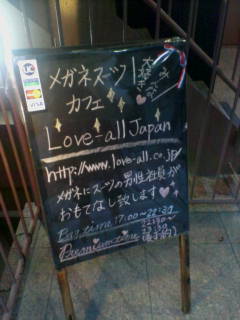 メガネスーツ
カフェ
大好き
Love-all Japan
http://www.love-all.co.jp/
メガネにスーツの男性社員が
おもてなし致します♥
Bar time 17:00~
23:30
VISA